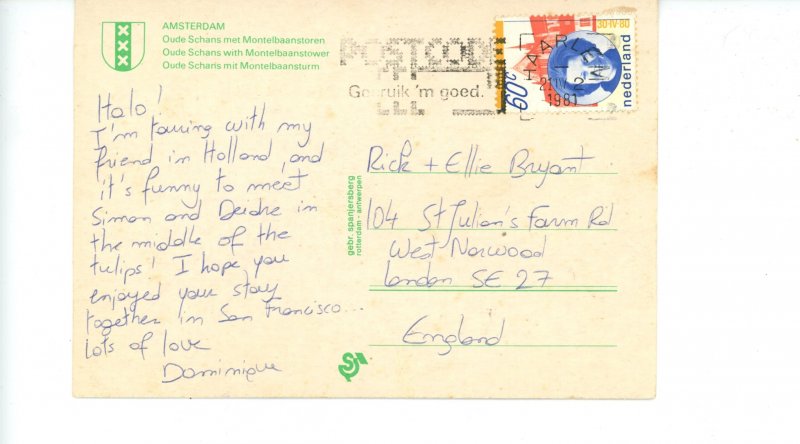 AMSTERDAM
Oude Schans met Montelbaanstoren
Oude Schans with Montelbaanstower
Oude Schans mit Montelbaansturm
POSTCODE
Gebruik 'm goed.
30·IV·80
nederland
60c
HAARLEM
1981
Halo!
I'm touring with my
friend in Holland, and
it's funny to meet
Simon and Deidre in
the middle of the
tulips! I hope you
enjoyed your stay
together in San Francisco...
lots of love
Dominique
gebr. spanjersberg
rotterdam - antwerpen
Rick + Ellie Bryant
104 St Julian's Farm Rd
West Norwood
London SE 27
England